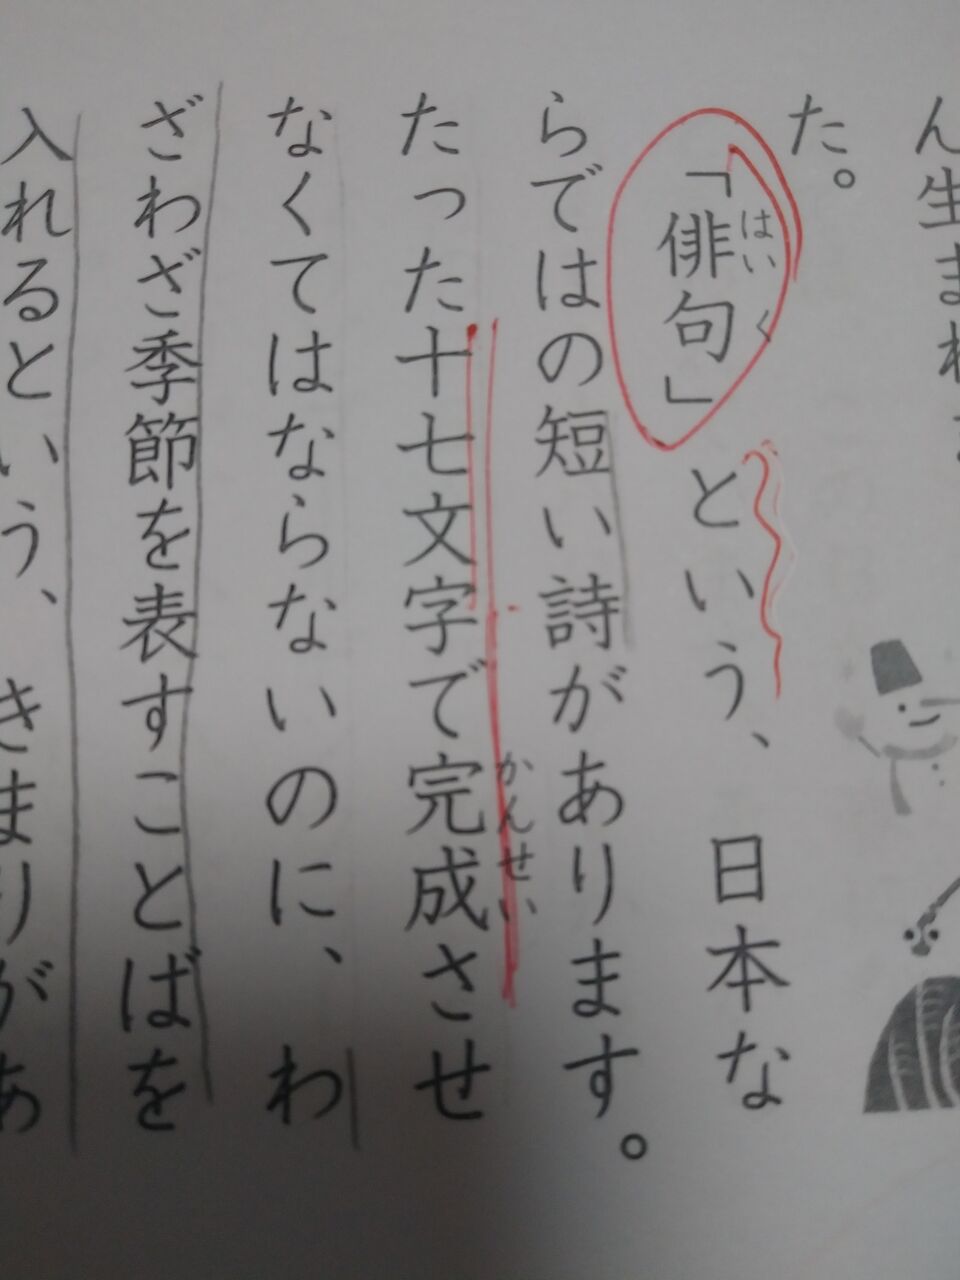 ん生まれ
た。
「俳句」という、日本な
はいく
らではの短い詩があります。
たった十七文字で完成させ
かんせい
なくてはならないのに、わ
ざわざ季節を表すことばを
入れるという、きまりがあ